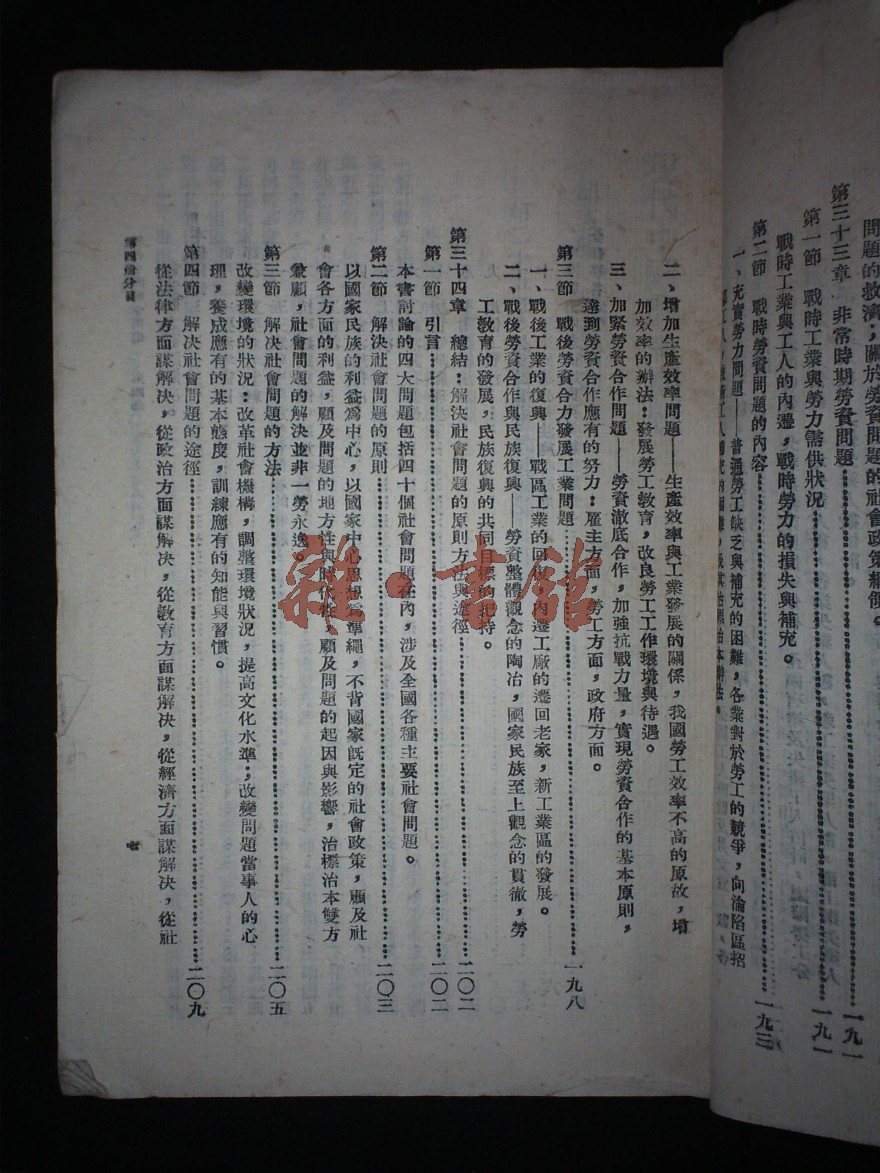 問題的救濟;關於勞資問題的社會政策綱領。
第三十三章 非常時期勞資問題……一九一
第一節 戰時工業與勞力需供狀況……一九一
戰時工業與工人的內遷,戰時勞力的損失與補充。
第二節 戰時勞資問題的內容……一九三
一、充實勞力問題——普通勞工缺乏與補充的困難,各業對於勞工的競爭,向淪陷區招
二、增加生產效率問題——生產效率與工業發展的關係,我國勞工效率不高的原故,增
加效率的辦法:發展勞工教育,改良勞工工作環境與待遇。
三、加緊勞資合作問題——勞資澈底合作,加強抗戰力量,實現勞資合作的基本原則,
達到勞資合作應有的努力:雇主方面,勞工方面,政府方面。
第三節 戰後勞資合力發展工業問題……一九八
一、戰後工業的復興——戰區工業的回復,內遷工廠的遷回老家,新工業區的發展。
二、戰後勞資合作與民族復興——勞資整體觀念的陶冶,國家民族至上觀念的貫徹,勞
工教育的發展,民族復興的共同目標的把持。
第三十四章 總結:解決社會問題的原則方法與途徑……二〇二
第一節 引言……二〇二
本書討論的四大問題包括四十個社會問題在內,涉及全國各種主要社會問題。
第二節 解決社會問題的原則……二〇三
以國家民族的利益為中心,以國家中心思想為準繩,不背國家既定的社會政策,顧及社
會各方面的利益,顧及問題的地方性與時代性,顧及問題的起因與影響,治標治本雙方
兼顧,社會問題的解決並非一勞永逸。
第三節 解決社會問題的方法……二〇五
改變環境的狀況:改革社會機構,調整環境狀況,提高文化水準;改變問題當事人的心
理,養成應有的基本態度,訓練應有的知能與習慣。
第四節 解決社會問題的途徑……二〇九
從法律方面謀解決,從政治方面謀解決,從教育方面謀解決,從經濟方面謀解決,從社
第四冊分目
七
雜·書館